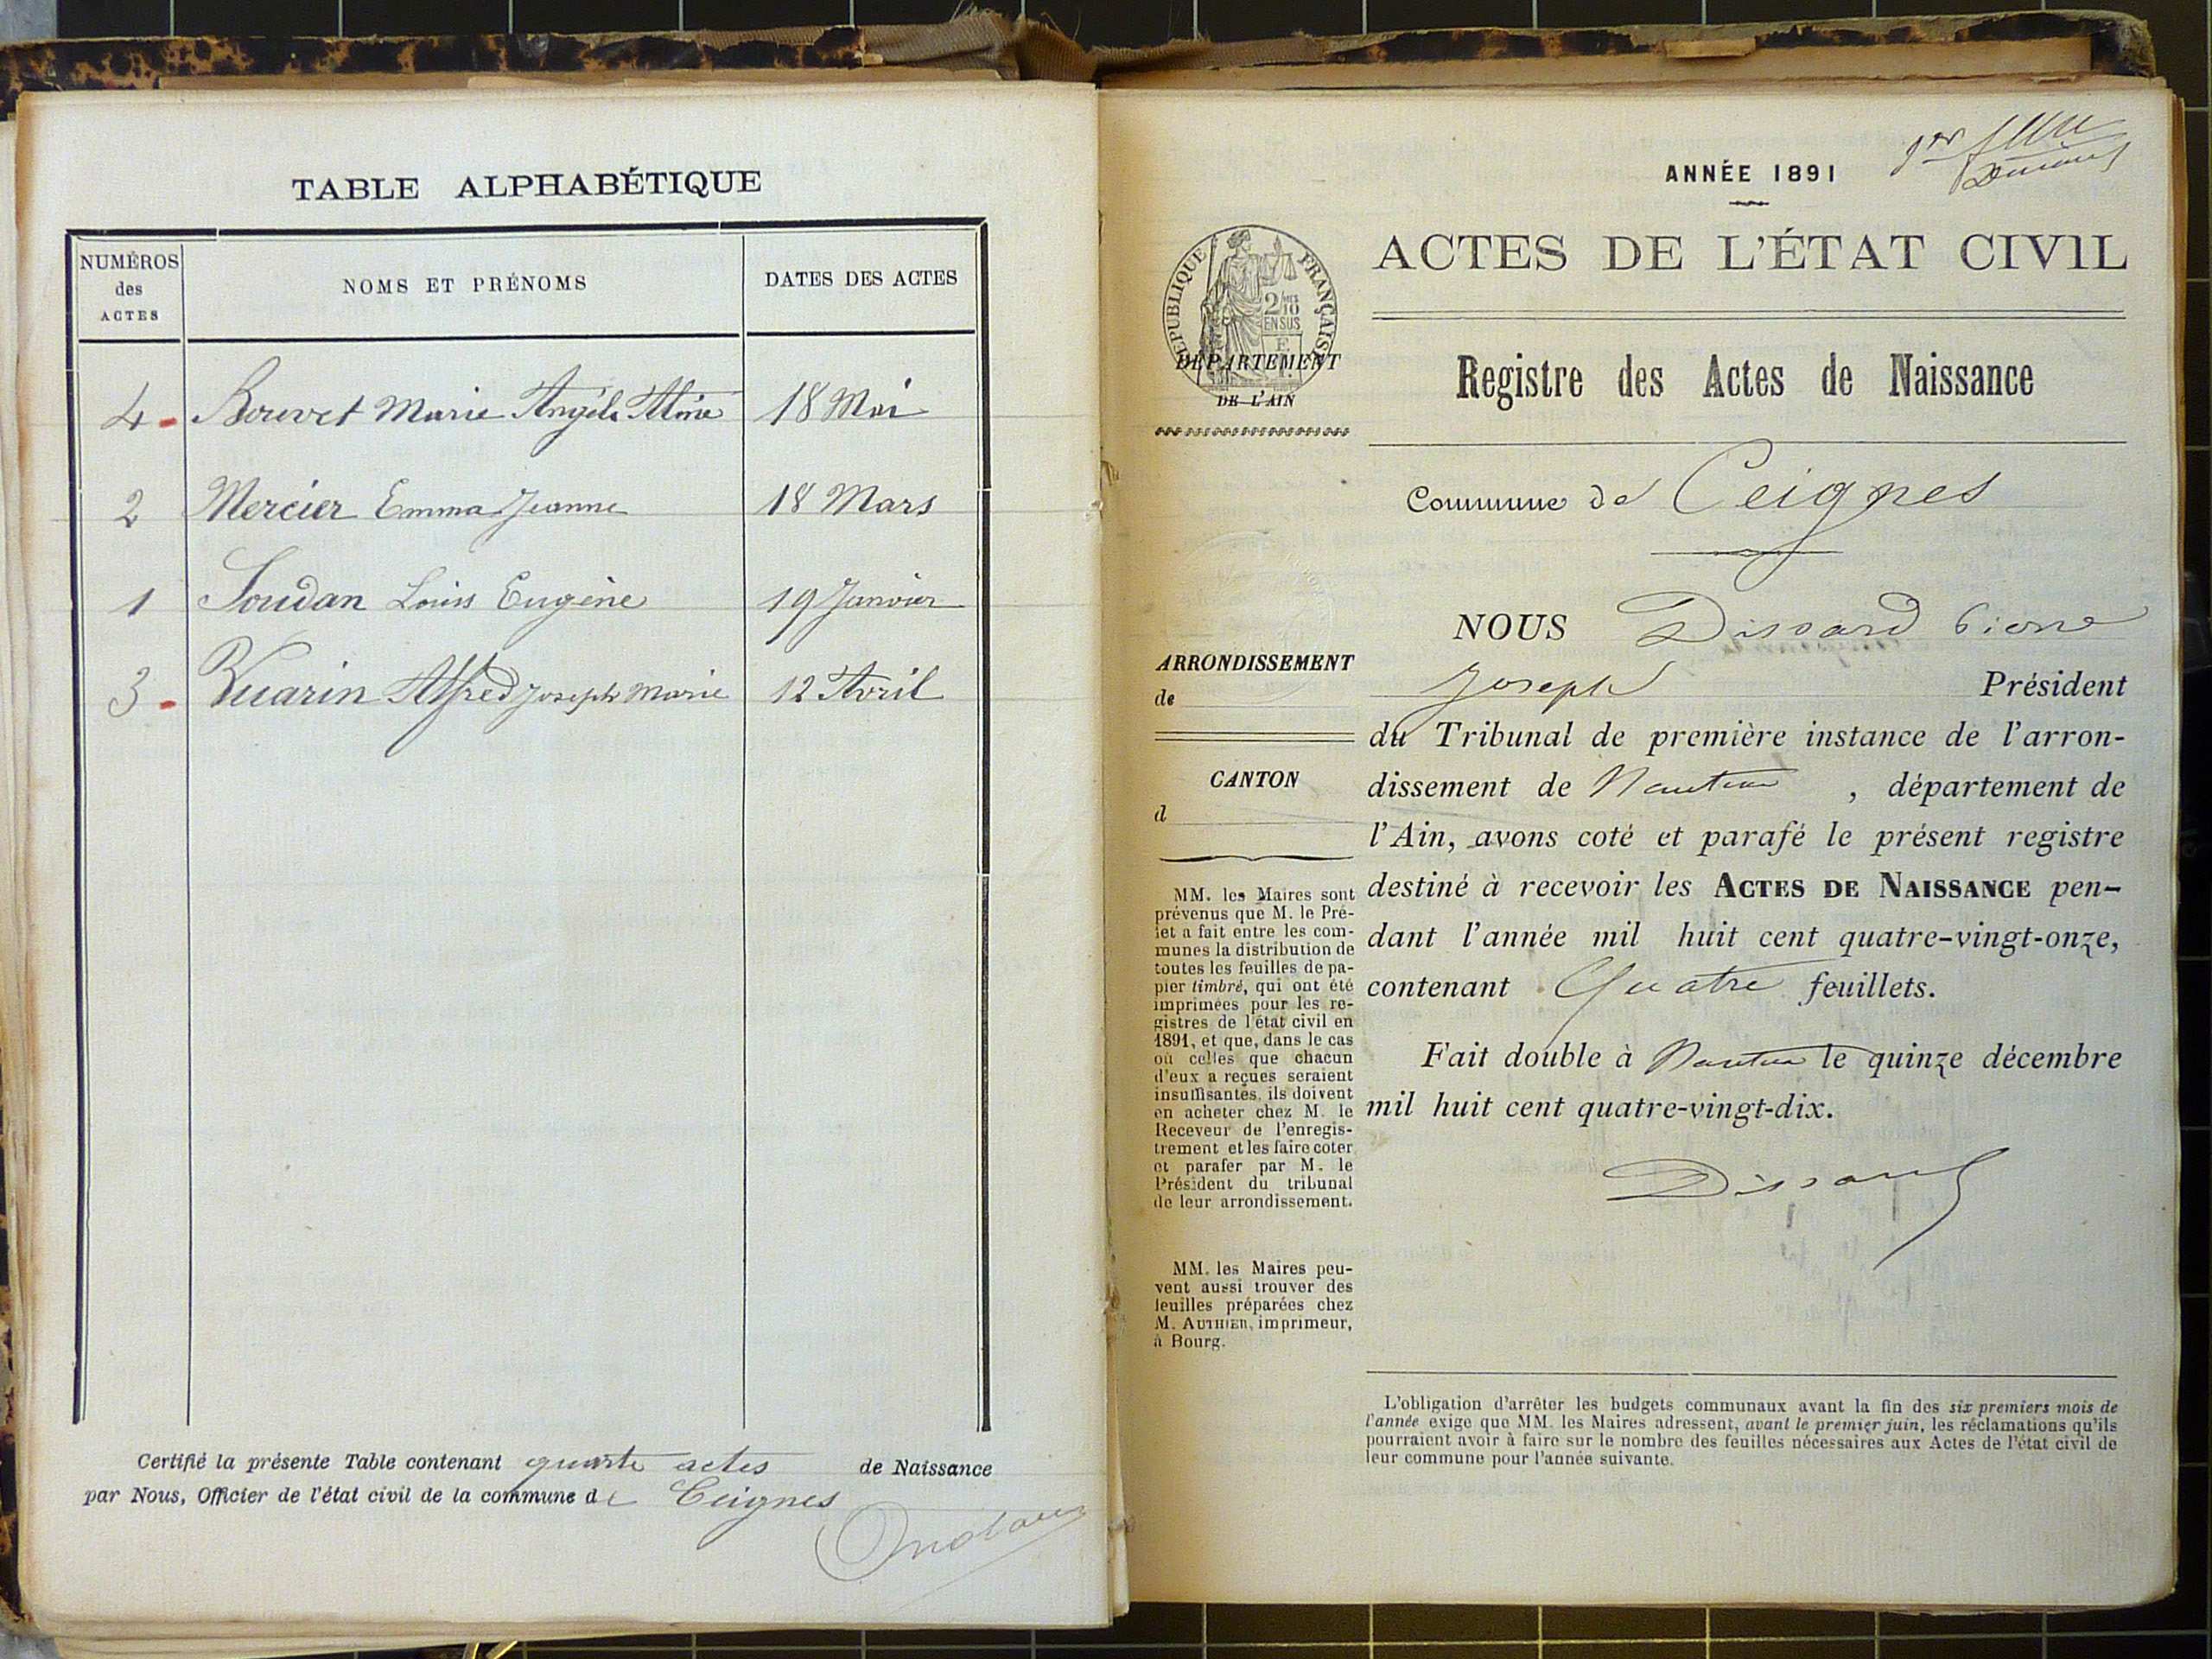 TABLE ALPHABÉTIQUE
NUMÉROS
des
ACTES
NOMS ET PRÉNOMS
DATES DES ACTES
4 Bouvet Marie Angèle 18 Mai
2 Mercier Emma Jeanne 18 Mars
1 Soudan Louis Eugène 19 Janvier
3 Vuarin Alfred Joseph Marie 12 Avril
Certifié la présente Table contenant quatre actes de Naissance
par Nous, Officier de l'état civil de la commune de Ceignes
ANNÉE 1891
ACTES DE L'ÉTAT CIVIL
RÉPUBLIQUE FRANÇAISE
2/10
EN SUS
DÉPARTEMENT
DE L'AIN
Registre des Actes de Naissance
Commune de Ceignes
NOUS Dissard Pierre
Joseph Président
du Tribunal de première instance de l'arron-
dissement de Nantua, département de
l'Ain, avons coté et parafé le présent registre
destiné à recevoir les ACTES DE NAISSANCE pen-
dant l'année mil huit cent quatre-vingt-onze,
contenant Quatre feuillets.
Fait double à Nantua le quinze décembre
mil huit cent quatre-vingt-dix.
Dissard
ARRONDISSEMENT
de
CANTON
d
MM. les Maires sont
prévenus que M. le Pré-
fet a fait entre les com-
munes la distribution de
toutes les feuilles de pa-
pier timbré, qui ont été
imprimées pour les re-
gistres de l'état civil en
1891, et que, dans le cas
où celles que chacun
d'eux a reçues seraient
insuffisantes, ils doivent
en acheter chez M. le
Receveur de l'enregis-
trement et les faire coter
et parafer par M. le
Président du tribunal
de leur arrondissement.
MM. les Maires peu-
vent aussi trouver des
feuilles préparées chez
M. AUTHIER, imprimeur,
à Bourg.
L'obligation d'arrêter les budgets communaux avant la fin des six premiers mois de
l'année exige que MM. les Maires adressent, avant le premier juin, les réclamations qu'ils
pourraient avoir à faire sur le nombre des feuilles nécessaires aux Actes de l'état civil de
leur commune pour l'année suivante.